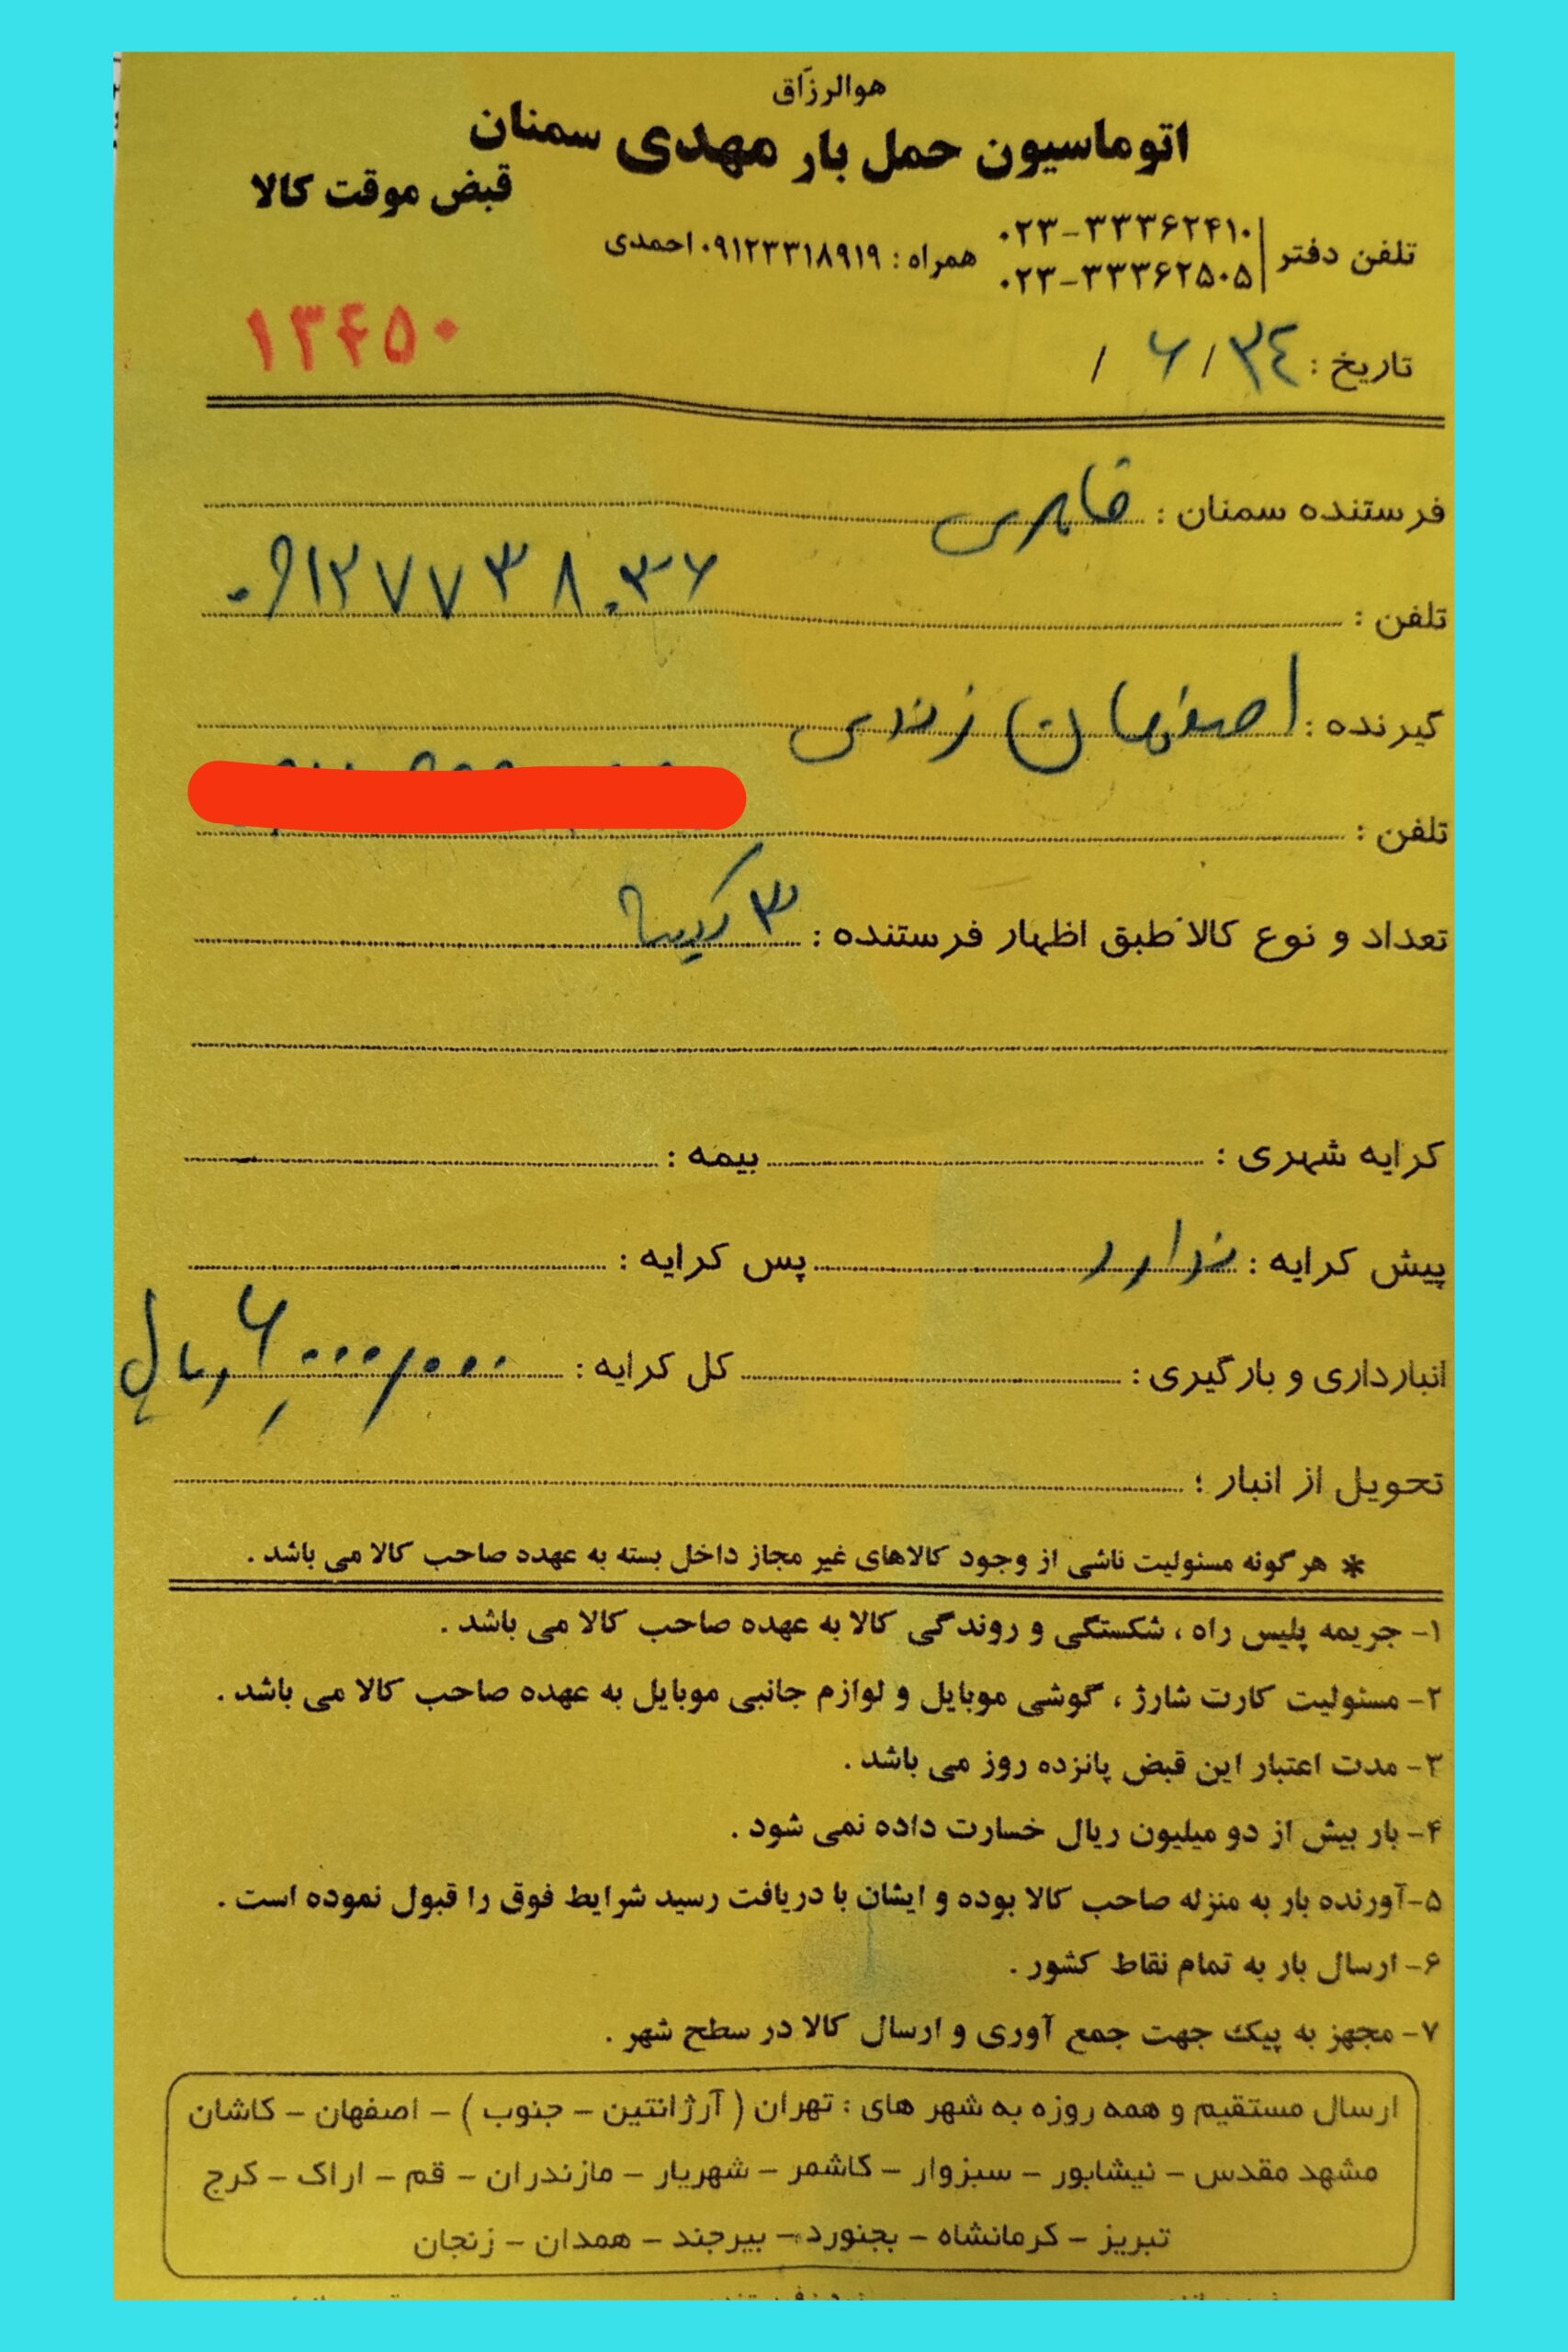 هوالرزّاق
اتوماسیون حمل بار مهدی سمنان
قبض موقت کالا
تلفن دفتر ۰۲۳-۳۳۳۶۲۴۱۰
۰۲۳-۳۳۳۶۲۵۰۵
همراه : ۰۹۱۲۳۳۱۸۹۱۹ احمدی
۱۳۴۵۰
تاریخ : ۳۴/۶/
فرستنده سمنان :
تلفن : ۰۹۱۲۷۷۳۸۰۳۶
گیرنده : اصفهان زندی
تلفن :
تعداد و نوع کالا طبق اظهار فرستنده : ۳ کیسه
کرایه شهری : بیمه :
پیش کرایه : ندارد پس کرایه :
انبارداری و بارگیری : کل کرایه : ۶,۰۰۰,۰۰۰ ریال
تحویل از انبار :
* هرگونه مسئولیت ناشی از وجود کالاهای غیر مجاز داخل بسته به عهده صاحب کالا می باشد .
۱- جریمه پلیس راه ، شکستگی و روندگی کالا به عهده صاحب کالا می باشد .
۲- مسئولیت کارت شارژ ، گوشی موبایل و لوازم جانبی موبایل به عهده صاحب کالا می باشد .
۳- مدت اعتبار این قبض پانزده روز می باشد .
۴- بار بیش از دو میلیون ریال خسارت داده نمی شود .
۵-آورنده بار به منزله صاحب کالا بوده و ایشان با دریافت رسید شرایط فوق را قبول نموده است .
۶- ارسال بار به تمام نقاط کشور .
۷- مجهز به پیک جهت جمع آوری و ارسال کالا در سطح شهر .
ارسال مستقیم و همه روزه به شهر های : تهران ( آرژانتین - جنوب ) - اصفهان - کاشان
مشهد مقدس - نیشابور - سبزوار - کاشمر - شهریار - مازندران - قم - اراک - کرج
تبریز - کرمانشاه - بجنورد - بیرجند - همدان - زنجان